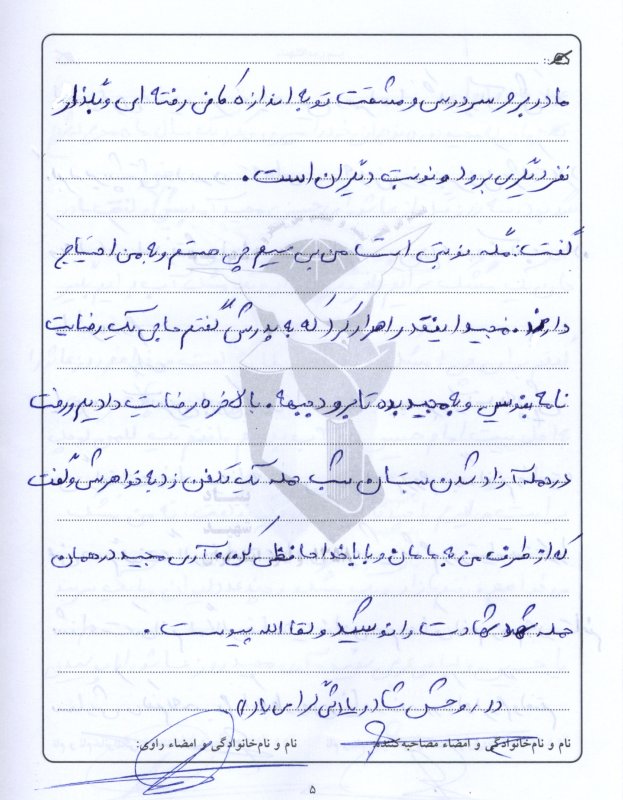 مادر برو سر درس و مشقت تو به اندازه کافی رفته ای و بگذار
نفر دیگری برود و نوبت دیگران است.
گفت: مگه نوبتی است من بی سیم چی هستم و به من احتیاج
دارند. مجید اینقدر اصرار کرد که به پدرش گفتم حاجی یک رضایت
نامه بنویس و به مجید بده تا برود جبهه. بالاخره رضایت دادیم و رفت
در حمله آزاد شدن بستان شب حمله یک تلفن زد به خواهرش و گفت
که از طرف من به مامان و بابا خداحافظی کن، آری مجید در همان
حمله شهد شهادت را نوشید و لقا الله پیوست.
در روحش شاد و یادش گرامی باد))
نام و نام خانوادگی و امضاء مصاحبه کننده:
نام و نام خانوادگی و امضاء راوی:
۵